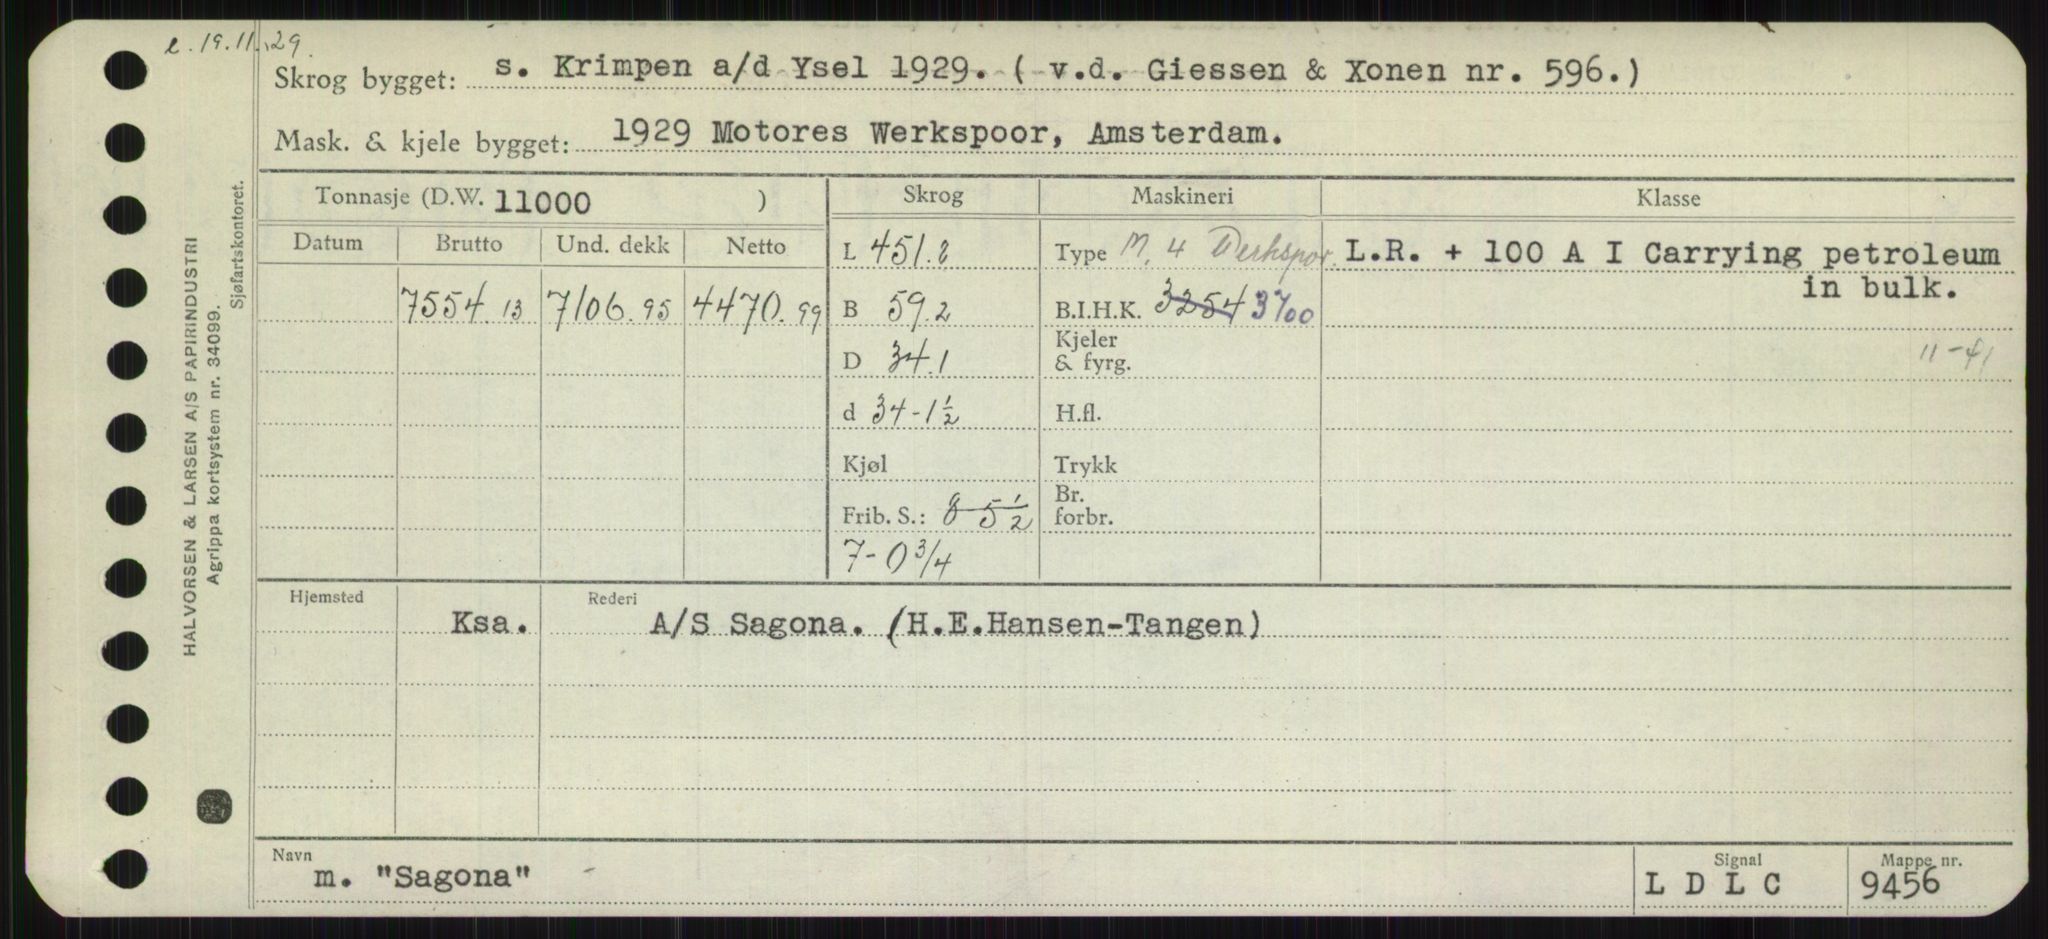 19.11.29.
Skrog bygget: s. Krimpen a/d Ysel 1929. ( v.d. Giessen & Xonen nr. 596.)
Mask. & kjele bygget: 1929 Motores Werkspoor, Amsterdam.
Tonnasje (D.W. 11000 ) Skrog Maskineri Klasse
Datum Brutto Und. dekk Netto
L 451.2 Type M. 4 Werkspor. L.R. + 100 A I Carrying petroleum
in bulk.
7554.13 7106.95 4470.99 B 59.2 B.I.H.K. 3254 3700
D 34.1 Kjeler
& fyrg. 11-41
d 34-1½ H.fl.
Kjøl Trykk
Frib. S.: 8 5½ Br.
forbr.
7-0 3/4
Hjemsted Rederi
Ksa. A/S Sagona. (H.E.Hansen-Tangen)
Navn Signal Mappe nr.
m. "Sagona" L D L C 9456
HALVORSEN & LARSEN A/S PAPIRINDUSTRI
Agrippa kortsystem nr. 34099.
Sjøfartskontoret.